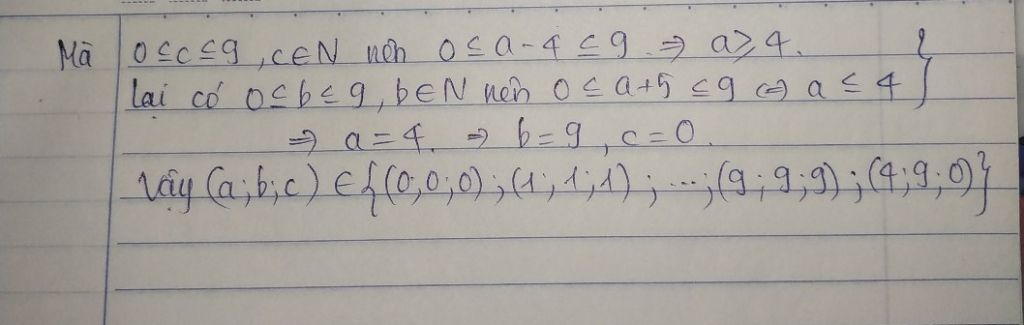 Mà 0 ≤ c ≤ 9, c ∈ N nên 0 ≤ a - 4 ≤ 9. ⇒ a ⩾ 4.
lại có 0 ≤ b ≤ 9, b ∈ N nên 0 ≤ a+5 ≤ 9 ⇔ a ≤ 4 }
⇒ a = 4. ⇒ b = 9, c = 0.
Vậy (a;b;c) ∈ {(0;0;0);(1;1;1);...;(9;9;9);(4;9;0)}